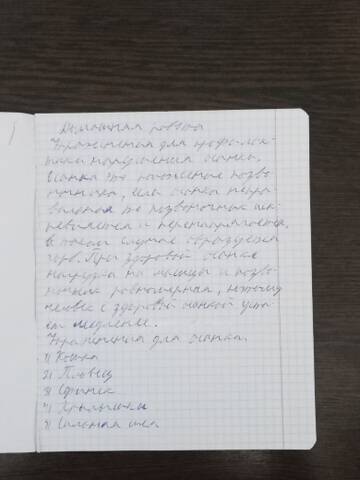 Домашняя работа
Упражнения для профилак-
тики нарушения осанки.
Осанка это положение позво-
ночника, если осанка непра-
вильная то позвоночник иск-
ревляется и перенапрягается,
в таком случае образуется
горб. При здоровой осанке
нагрузка на мышцы и позво-
ночник равномерная, поэтому
человек с здоровой осанкой уста-
ёт медленее.
Упражнения для осанки.
1) Кошка
2) Пловец
3) Сфинкс
4) Крылышки
5) Сильная шея